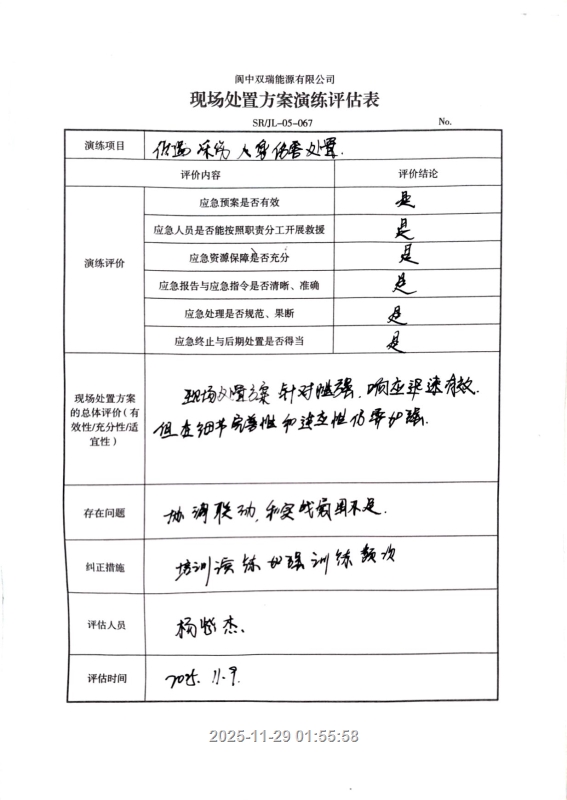 阆中双瑞能源有限公司
现场处置方案演练评估表
SR/JL-05-067 No.
演练项目 人身伤害处置.
评价内容 评价结论
演练评价
应急预案是否有效 是
应急人员是否能按照职责分工开展救援 是
应急资源保障是否充分 是
应急报告与应急指令是否清晰、准确 是
应急处理是否规范、果断 是
应急终止与后期处置是否得当 是
现场处置方案
的总体评价(有
效性/充分性/适
宜性)
现场处置方案 针对性强, 响应迅速有效.
但在细节完善性和适应性仍需加强.
存在问题 协调联动, 和实战 不足.
纠正措施 培训演练 加强训练频次
评估人员 杨 杰.
评估时间 2025. 11. 9.
2025-11-29 01:55:58